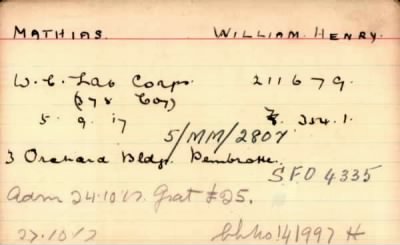 MATHIAS. WILLIAM HENRY.
W.C. Lab Corps. 211679.
(278 Coy)
5. 9. 17 354.1.
5/MM/2807
3 Orchard Bldgs. Pembroke.
S.F.O 4335
Adm 24.10.17. Grat £25.
27.10.17 141997 H